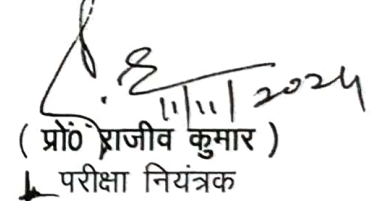 11/11/2024
( प्रो० राजीव कुमार )
परीक्षा नियंत्रक